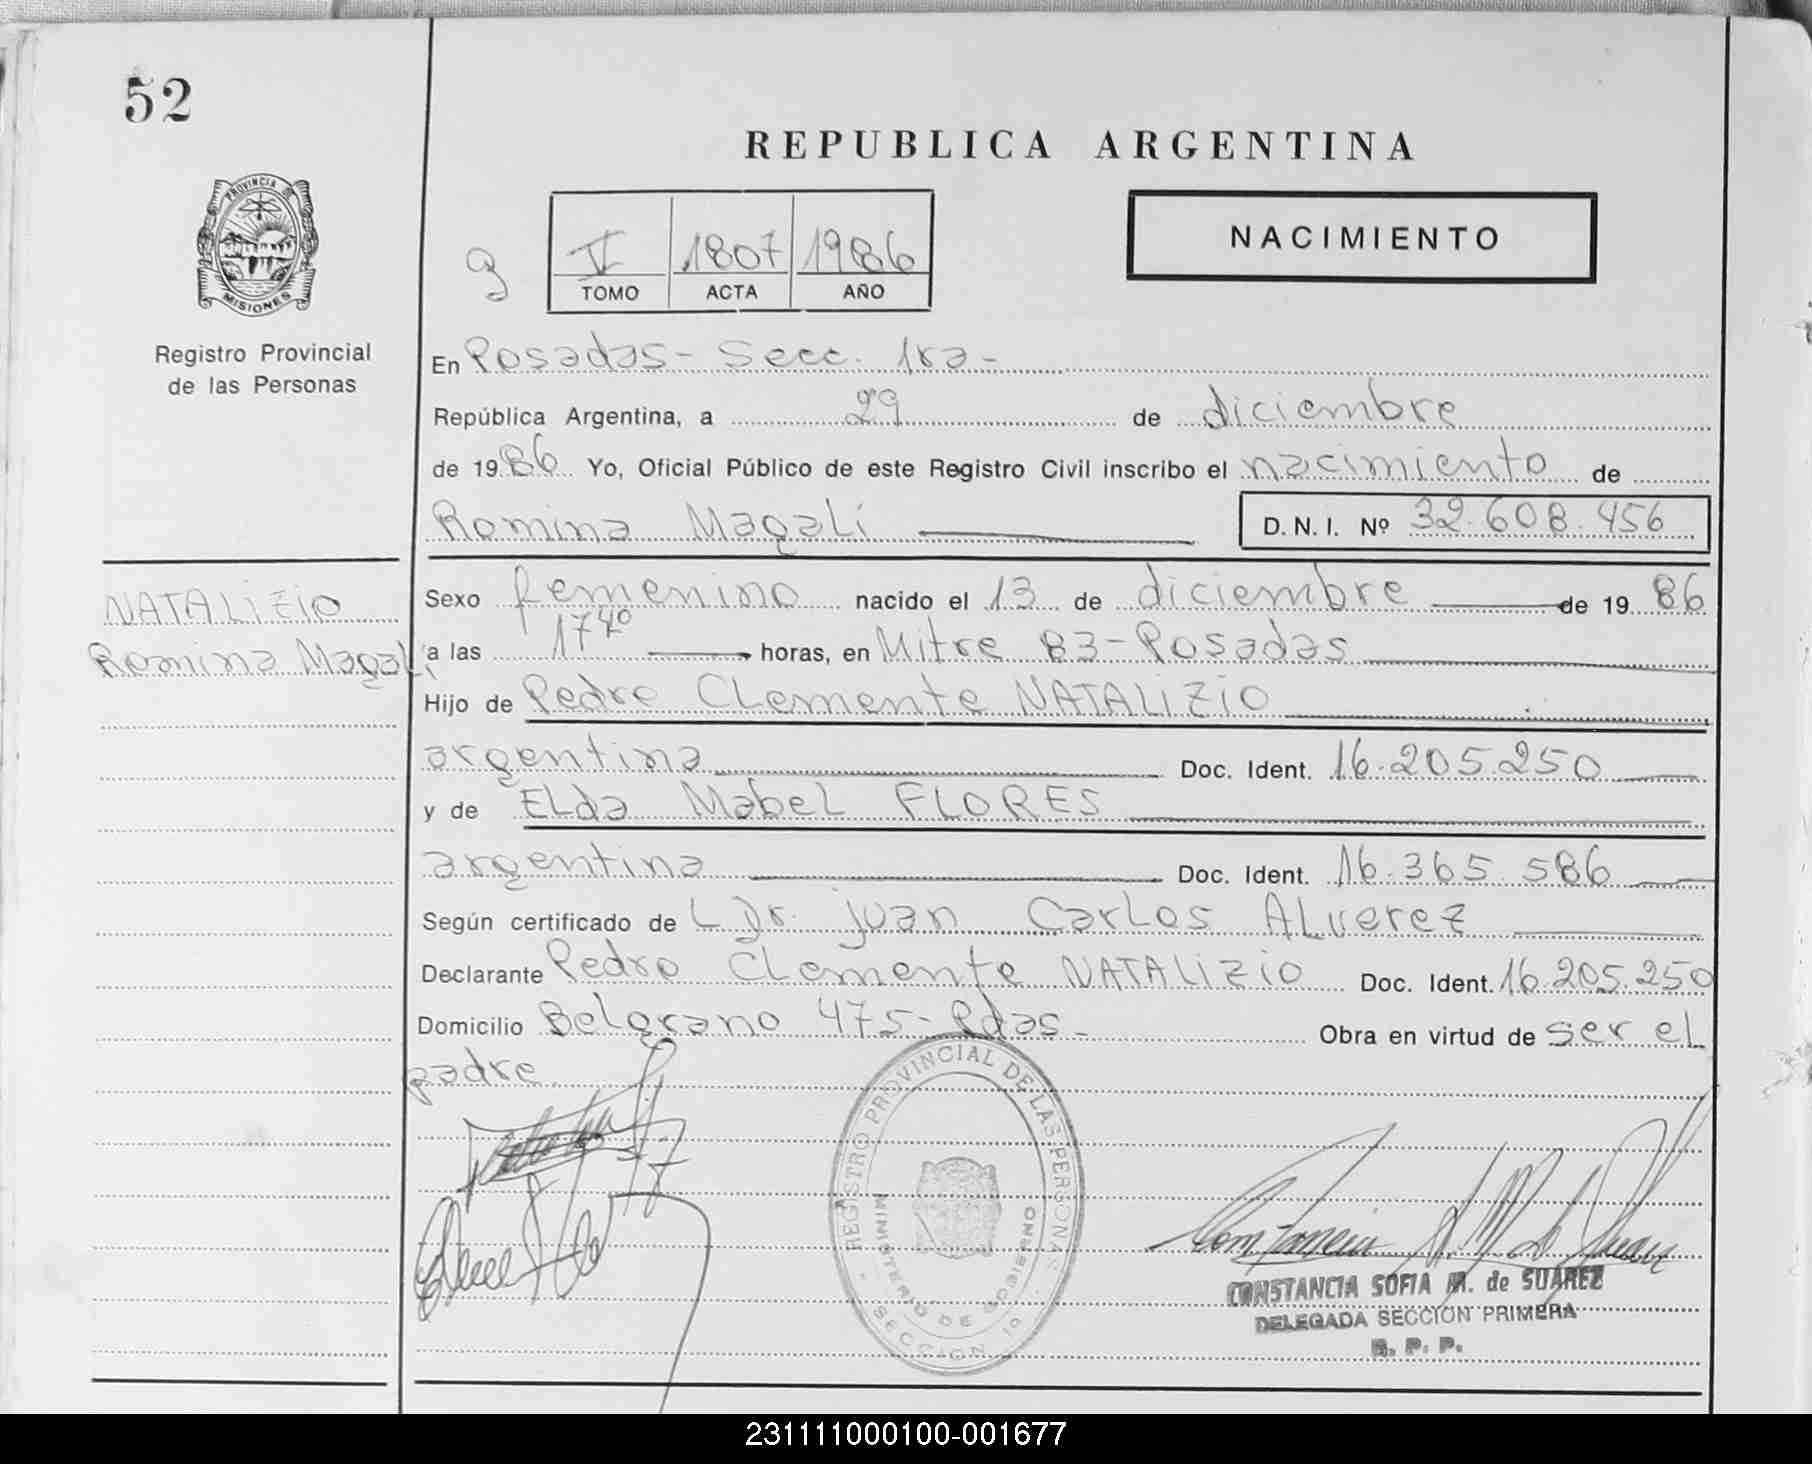 52
REPUBLICA ARGENTINA
PROVINCIA DE
MISIONES
Registro Provincial
de las Personas
g
V 1807 1986
TOMO ACTA AÑO
NACIMIENTO
En Posadas - Secc. 1ra -
República Argentina, a 29 de diciembre
de 1986 Yo, Oficial Público de este Registro Civil inscribo el nacimiento de
Romina Magali
D. N. I. Nº 32.608.456
NATALIZIO
Romina Magali
Sexo femenino nacido el 13 de diciembre de 1986
a las 17 40 horas, en Mitre 83 - Posadas
Hijo de Pedro Clemente NATALIZIO
argentina Doc. Ident. 16.205.250
y de Elda Mabel FLORES
argentina Doc. Ident. 16.365.586
Según certificado de L Dr. Juan Carlos Alverez
Declarante Pedro Clemente NATALIZIO Doc. Ident. 16.205.250
Domicilio Belgrano 475 - Pdas - Obra en virtud de ser el
padre
REGISTRO PROVINCIAL DE LAS PERSONAS
MINISTERIO DE GOBIERNO
SECCION 1º
CONSTANCIA SOFIA M. de SUAREZ
DELEGADA SECCION PRIMERA
R. P. P.
231111000100-001677